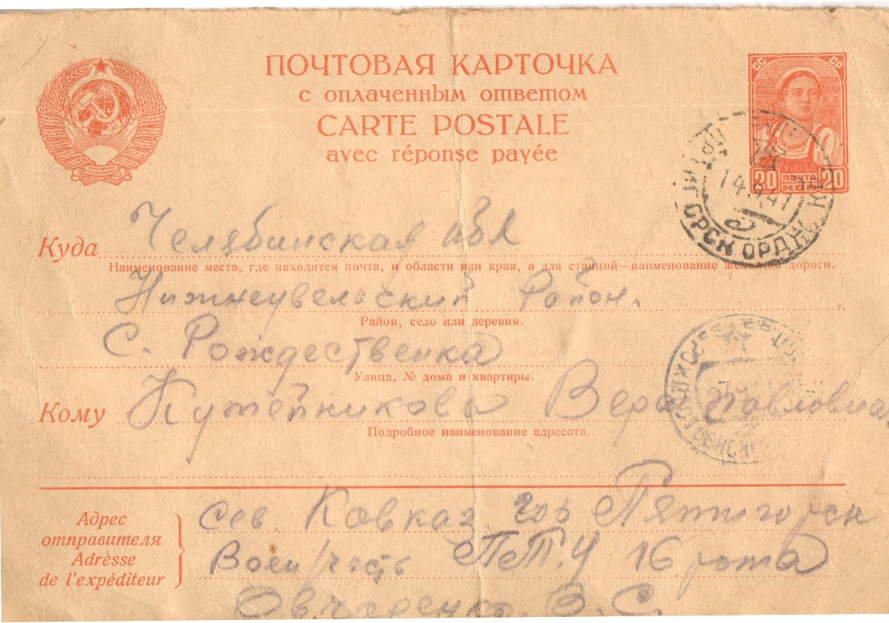 ПОЧТОВАЯ КАРТОЧКА
с оплаченным ответом
CARTE POSTALE
avec réponse payée
СС СР
20 ПОЧТА 20
ГОРСК ОРДЖ
Куда Челябинская обл
Наименование места, где находится почта, и области или края, а для станций—наименование железной дороги.
Нижнеувельский Район.
Район, село или деревня.
С. Рождественка
Улица, № дома и квартиры.
Кому Кутейникова Вера Павловна
Подробное наименование адресата.
Адрес
отправителя
Adrèsse
de l'expéditeur
Сев Кавказ гор Пятигорск
Воен/часть ПТУ 16 рота